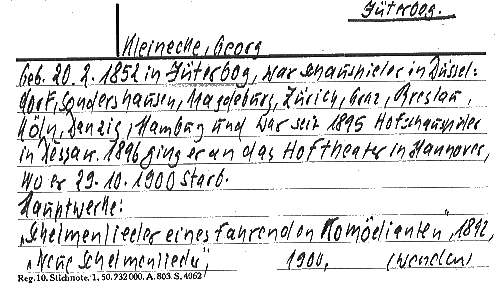 Jüterbog.
Kleinecke, Georg
Geb. 20. 2. 1852 in Jüterbog, war Schauspieler in Düssel-
dorf, Sondershausen, Magdeburg, Zürich, Graz, Breslau,
Köln, Danzig, Hamburg und war seit 1895 Hofschauspieler
in Dessau. 1896 ging er an das Hoftheater in Hannover,
wo er 29. 10. 1900 starb.
Hauptwerke:
„Schelmenlieder eines fahrenden Komödianten", 1892,
„Neue Schelmenlieder", 1900, (wenden)
Reg. 10. Stichnote. 1, 50. 732000. A. 803. S. 4062